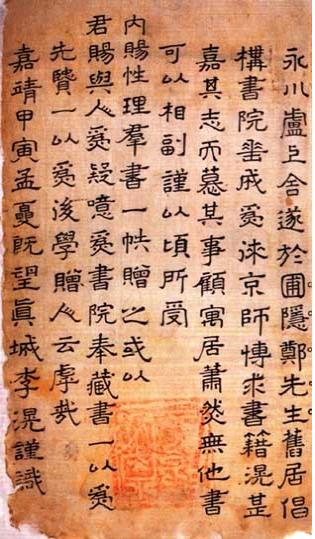 永川盧上舍遂於圃隱鄭先生舊居倡
構書院垂成爲淶京師愽求書籍滉甚
嘉其志而慕其事顧寓居蕭然無他書
可以相副謹以頃所受
內賜性理羣書一帙贈之或以
君賜與人爲疑噫爲書院奉藏書一以爲
先贒一以爲後學贈人云虖哉
嘉靖甲寅孟夏旣望眞城李滉謹識